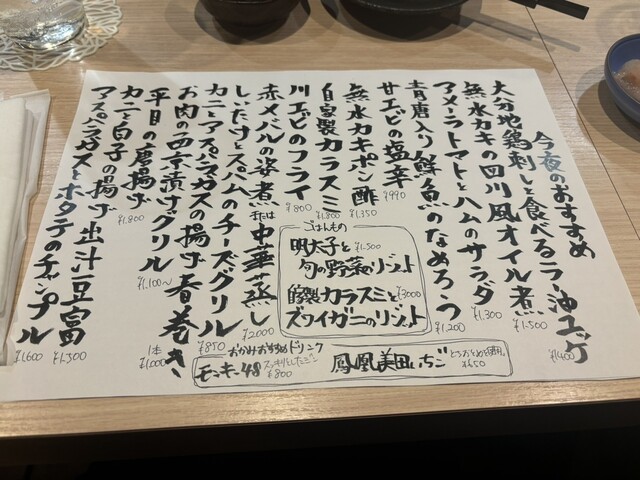 今夜のおすすめ
大分地鶏刺しと食べるラー油ユッケ ¥1400
無水カキの四川風オイル煮 ¥1.500
アメーラトマトとハムのサラダ ¥1.300
青唐入り鮮魚のなめろう ¥1,200
サエビの塩辛 ¥990
無水カキポン酢 ¥1.350
自家製カラスミ ¥1.800
川エビのフライ ¥800
赤メバルの姿煮または中華蒸し ¥2000
しいたけとスパムのチーズグリル ¥850
カニとアスパラガスの揚げ春巻き 1本 ¥1,000
お肉の西京漬けグリル ¥1.100〜
平目の唐揚げ ¥1.800
カニと白子の揚げ出汁豆富 ¥1.300
アスパラガスとホタテのチャンプル ¥1600
ごはんもの
明太子と旬の野菜のリゾット ¥1.500
自家製カラスミとズワイガニのリゾット ¥3000
おかみおすすめドリンク
モンキー48 スッキリしたジン ¥800
鳳凰美田いちご とちおとめを使用。 ¥650